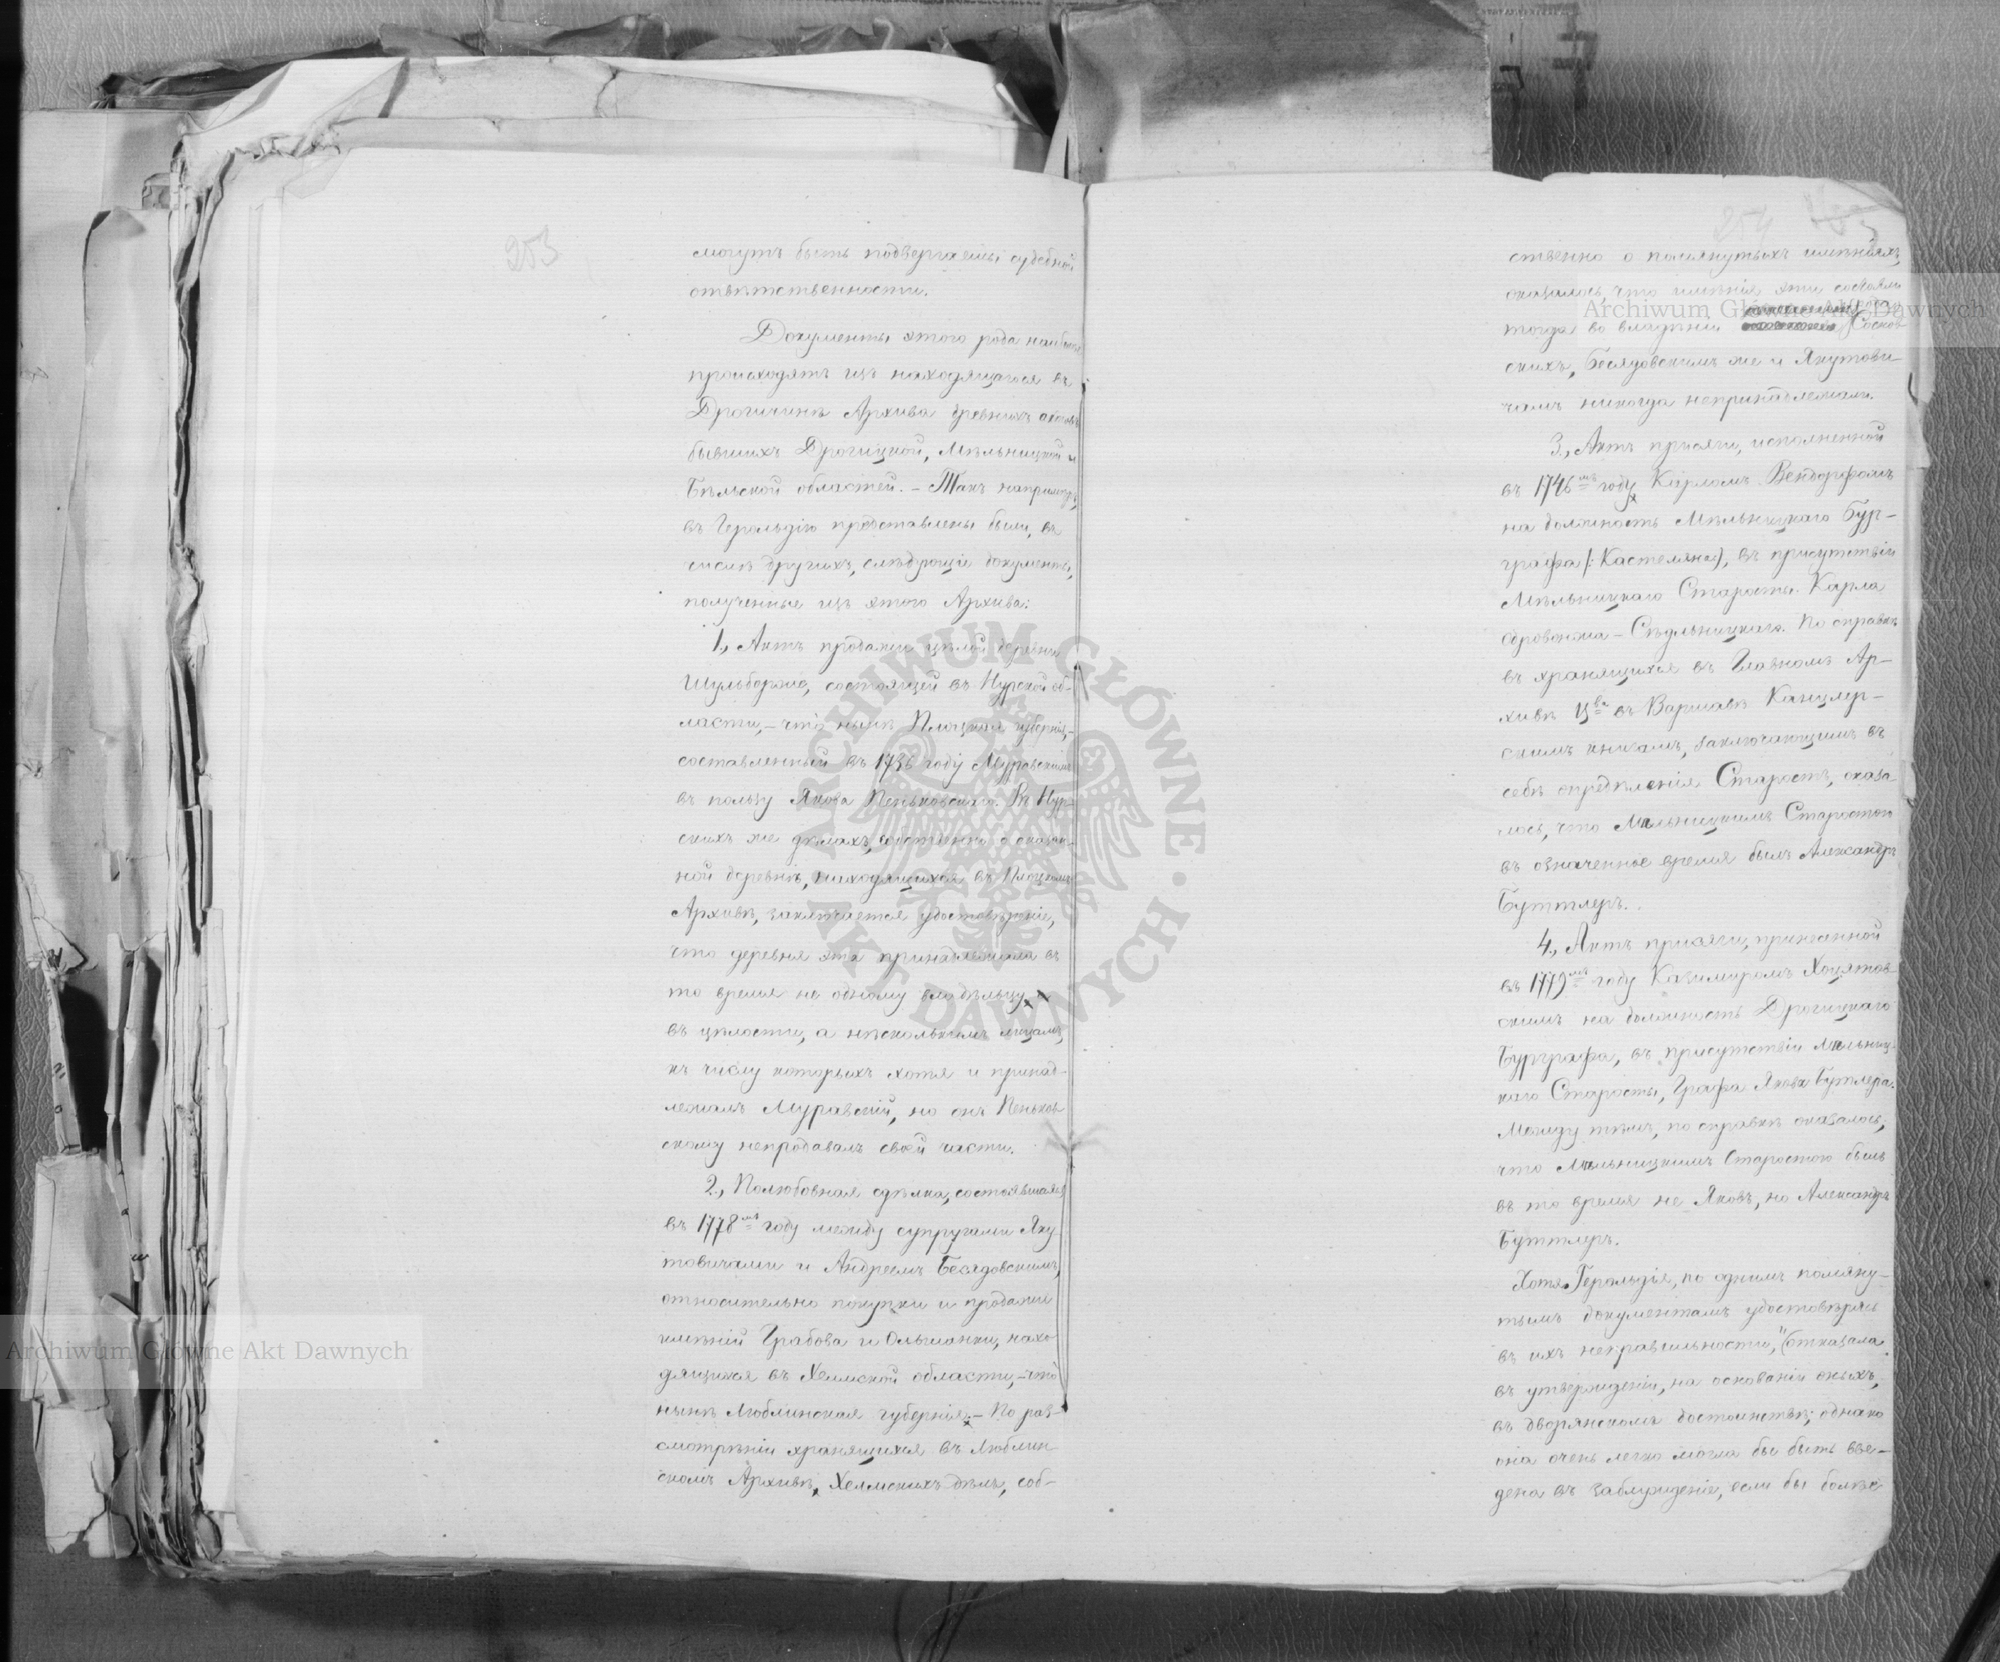 253
могутъ быть подвергаемы судебной
отвѣтственности.
Документы этого рода наиболѣе
происходятъ изъ находящагося въ
Дрогичинѣ Архива древнихъ актовъ
бывшихъ Дрогицкой, Мѣльницкой и
Бѣльской областей. – Такъ напримѣръ,
въ Герольдію представлены были, въ
числѣ другихъ, слѣдующіе документы,
полученные изъ этого Архива:
1., Актъ продажи цѣлой деревни
Шульборже, состоящей въ Нурской об-
ласти, – что нынѣ Плоцкая губернія, –
составленный въ 1736 году Муравскимъ
въ пользу Якова Пеньковскаго. Въ Нур-
скихъ же дѣлахъ, собственно о сказан-
ной деревнѣ, находящихся въ Плоцкомъ
Архивѣ, заключается удостовѣреніе,
что деревня эта принадлежала въ
то время не одному владѣльцу
въ цѣлости, а нѣсколькимъ лицамъ,
къ числу которыхъ хотя и принад-
лежалъ Муравскій, но онъ Пеньков-
скому непродавалъ своей части.
2., Полюбовная сдѣлка, состоявшаяся
въ 1778мъ году между супругами Яку-
товичами и Андреемъ Беядовскимъ,
относительно покупки и продажи
имѣній Грабова и Ольшанки, нахо-
дящихся въ Хелмской области, – что
нынѣ Люблинская губернія. – По раз-
смотрѣніи хранящихся въ Люблин-
скомъ Архивѣ, Хелмскихъ дѣлъ, соб-
254
ственно о помянутыхъ имѣніяхъ,
оказалось, что имѣнія эти состояли
тогда во владѣніи Соснов-
скихъ, Беядовскимъ же и Якутови-
чамъ никогда непринадлежали.
3., Актъ присяги, исполненной
въ 1746мъ году Карломъ Вендорфомъ
на должность Мѣльницкаго Бур-
графа (: Кастеляна), въ присутствіи
Мѣльницкаго Старосты Карла
Одровонжа – Сѣдльницкаго. По справкѣ
въ хранящихся въ Главномъ Ар-
хивѣ Цва въ Варшавѣ Канцлер-
скимъ книгамъ, заключающимъ въ
себѣ опредѣленія Старостъ, оказа-
лось, что Мѣльницкимъ Старостою
въ означенное время былъ Александръ
Буттлеръ.
4., Актъ присяги, принесенной
въ 1779мъ году Казимиромъ Хоцятов-
скимъ на должность Дрогицкаго
Бурграфа, въ присутствіи Мѣльниц-
каго Старосты, Графа Якова Бутлера.
Между тѣмъ, по справкѣ оказалось,
что Мѣльницкимъ Старостою былъ
въ то время не Яковъ, но Александръ
Буттлеръ.
Хотя Герольдія, по однимъ помяну-
тымъ документамъ удостовѣрясь
въ ихъ неправильности, отказала
въ утвержденіи, на основаніи оныхъ,
въ дворянскомъ достоинствѣ; однако
она очень легко могла бы быть вве-
дена въ заблужденіе, если бы болѣе
Archiwum Główne Akt Dawnych
Archiwum Główne Akt Dawnych
Archiwum Główne Akt Dawnych
ARCHIWUM GŁÓWNE · AKT DAWNYCH ·